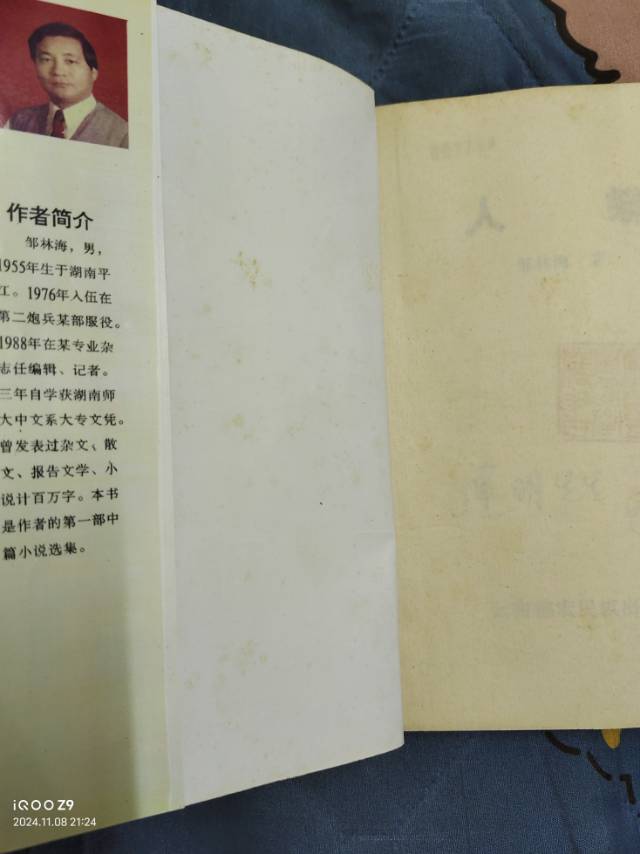 作者简介
邹林海，男，
1955年生于湖南平
江。1976年入伍在
第二炮兵某部服役。
1988年在某专业杂
志任编辑、记者。
三年自学获湖南师
大中文系大专文凭。
曾发表过杂文、散
文、报告文学、小
说计百万字。本书
是作者的第一部中
篇小说选集。
人
iQOO Z9
2024.11.08 21:24